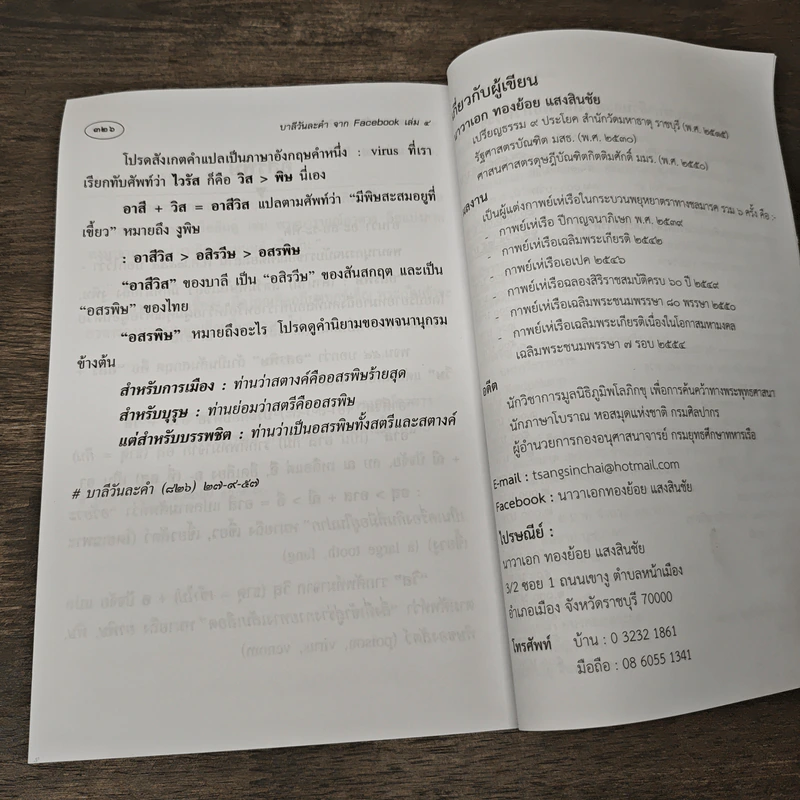 ๓๒๖
บาลีวันละคำ จาก Facebook เล่ม ๙
โปรดสังเกตคำแปลเป็นภาษาอังกฤษคำหนึ่ง : virus ที่เรา
เรียกทับศัพท์ว่า ไวรัส ก็คือ วิส > พิษ นี่เอง
อาสี + วิส = อาสีวิส แปลตามศัพท์ว่า “มีพิษสะสมอยู่ที่
เขี้ยว” หมายถึง งูพิษ
: อาสีวิส > อสิรวีษ > อสรพิษ
“อาสีวิส” ของบาลี เป็น “อสิรวีษ” ของสันสกฤต และเป็น
“อสรพิษ” ของไทย
“อสรพิษ” หมายถึงอะไร โปรดดูคำนิยามของพจนานุกรม
ข้างต้น
สำหรับการเมือง : ท่านว่าสตางค์คืออสรพิษร้ายสุด
สำหรับบุรุษ : ท่านย่อมว่าสตรีคืออสรพิษ
แต่สำหรับบรรพชิต : ท่านว่าเป็นอสรพิษทั้งสตรีและสตางค์
# บาลีวันละคำ (๘๒๖) ๒๗-๙-๕๗
เกี่ยวกับผู้เขียน
นาวาเอก ทองย้อย แสงสินชัย
เปรียญธรรม ๙ ประโยค สำนักวัดมหาธาตุ ราชบุรี (พ.ศ. ๒๕๑๕)
รัฐศาสตรบัณฑิต มสธ. (พ.ศ. ๒๕๓๐)
ศาสนศาสตรดุษฎีบัณฑิตกิตติมศักดิ์ มมร. (พ.ศ. ๒๕๕๐)
ผลงาน
เป็นผู้แต่งกาพย์เห่เรือในกระบวนพยุหยาตราทางชลมารค รวม ๖ ครั้ง คือ :-
- กาพย์เห่เรือ ปีกาญจนาภิเษก พ.ศ. ๒๕๓๙
- กาพย์เห่เรือเฉลิมพระเกียรติ ๒๕๔๒
- กาพย์เห่เรือเอเปค ๒๕๔๖
- กาพย์เห่เรือฉลองสิริราชสมบัติครบ ๖๐ ปี ๒๕๔๙
- กาพย์เห่เรือเฉลิมพระชนมพรรษา ๘๐ พรรษา ๒๕๕๐
- กาพย์เห่เรือเฉลิมพระเกียรติเนื่องในโอกาสมหามงคล
เฉลิมพระชนมพรรษา ๗ รอบ ๒๕๕๔
อดีต
นักวิชาการมูลนิธิภูมิพโลภิกขุ เพื่อการค้นคว้าทางพระพุทธศาสนา
นักภาษาโบราณ หอสมุดแห่งชาติ กรมศิลปากร
ผู้อำนวยการกองอนุศาสนาจารย์ กรมยุทธศึกษาทหารเรือ
E-mail : tsangsinchai@hotmail.com
Facebook : นาวาเอกทองย้อย แสงสินชัย
ไปรษณีย์ :
นาวาเอก ทองย้อย แสงสินชัย
3/2 ซอย 1 ถนนเขางู ตำบลหน้าเมือง
อำเภอเมือง จังหวัดราชบุรี 70000
โทรศัพท์ บ้าน : 0 3232 1861
มือถือ : 08 6055 1341